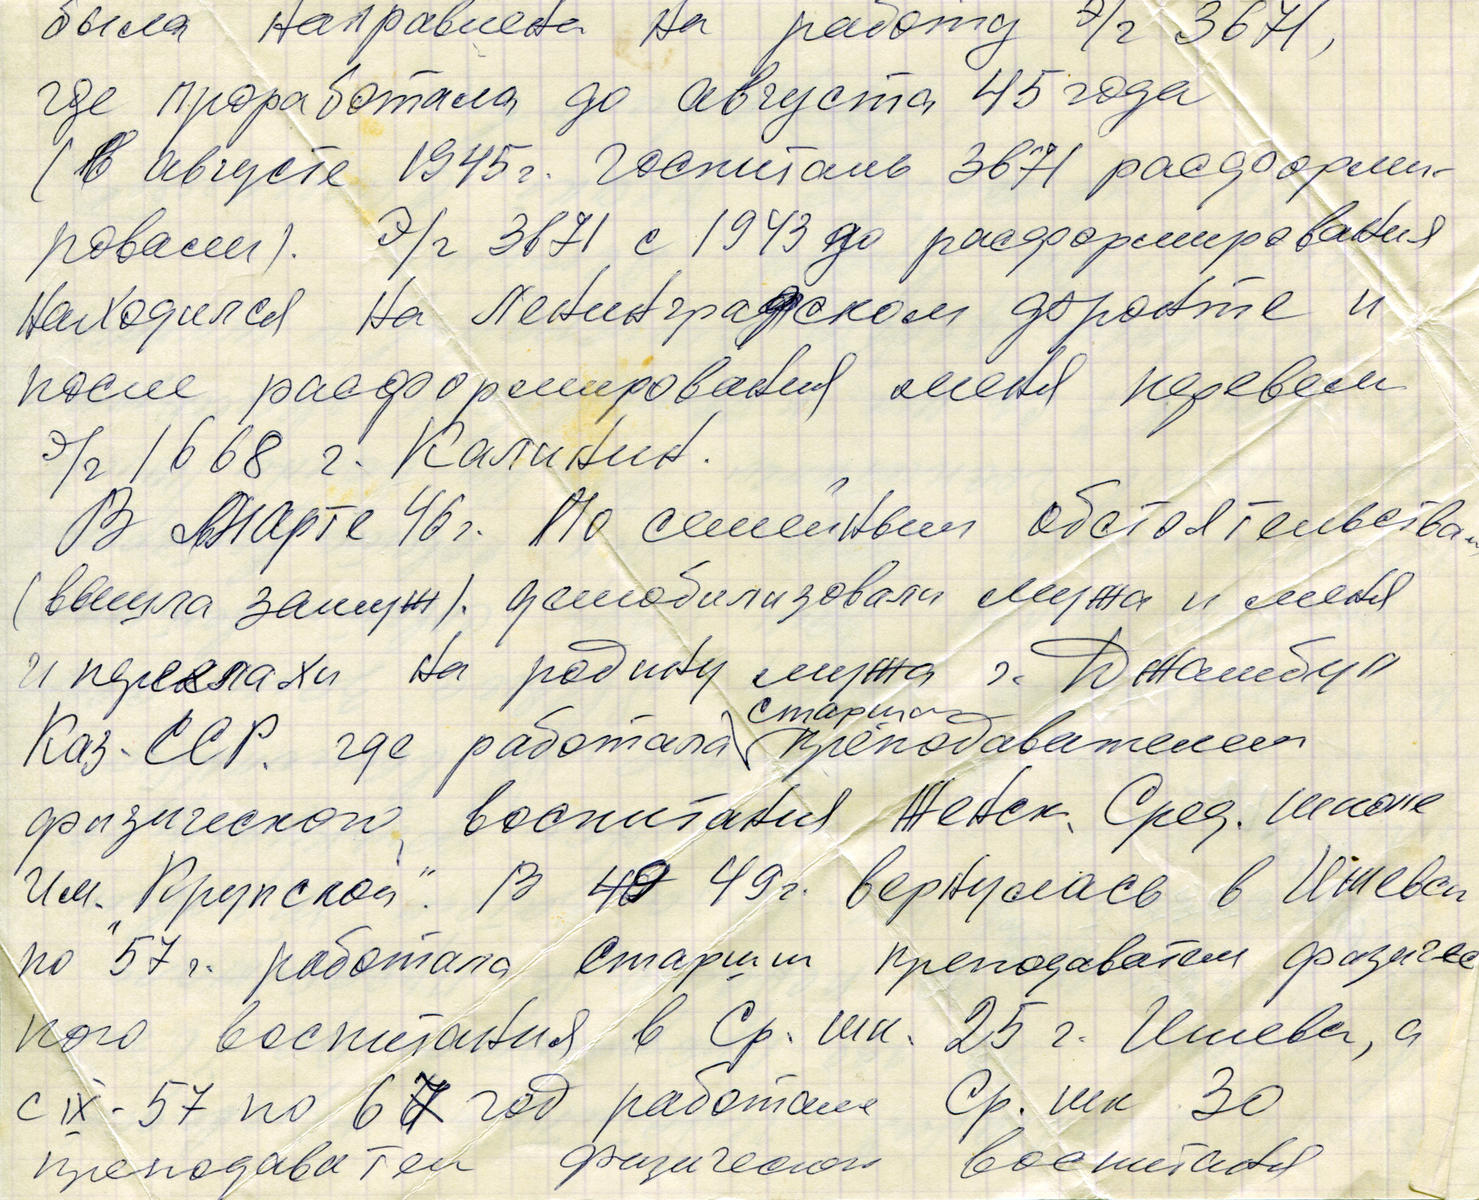 была направлена на работу Э/г 3671,
где проработала до августа 45 года
(В августе 1945 г. госпиталь 3671 расформи-
ровали). Э/г 3671 с 1943 до расформирования
находился на Ленинградском фронте и
после расформирования меня перевели
Э/г 1668 г. Калинин.
В Марте 46 г. По семейным обстоятельствам
(вышла замуж). демобилизовали мужа и меня
и переехали на родину мужа г. Джамбул
Каз. ССР. где работала старшим преподавателем
физического воспитания Женск. Сред. школе
им. "Крупской". В 49 г. вернулась в Ижевск
по 57 г. работала старшим преподавателем физичес
кого воспитания в Ср. шк. 25 г. Ижевск, а
с IX-57 по 67 год работала Ср. шк 30
преподавател физического воспитания